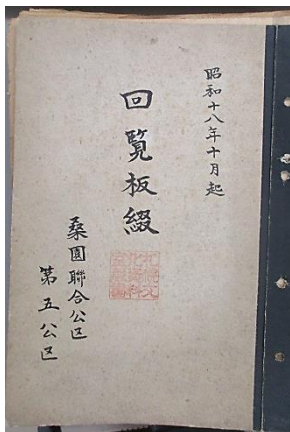 昭和十八年十月起
回覧板綴
桑園聯合公区
第五公区